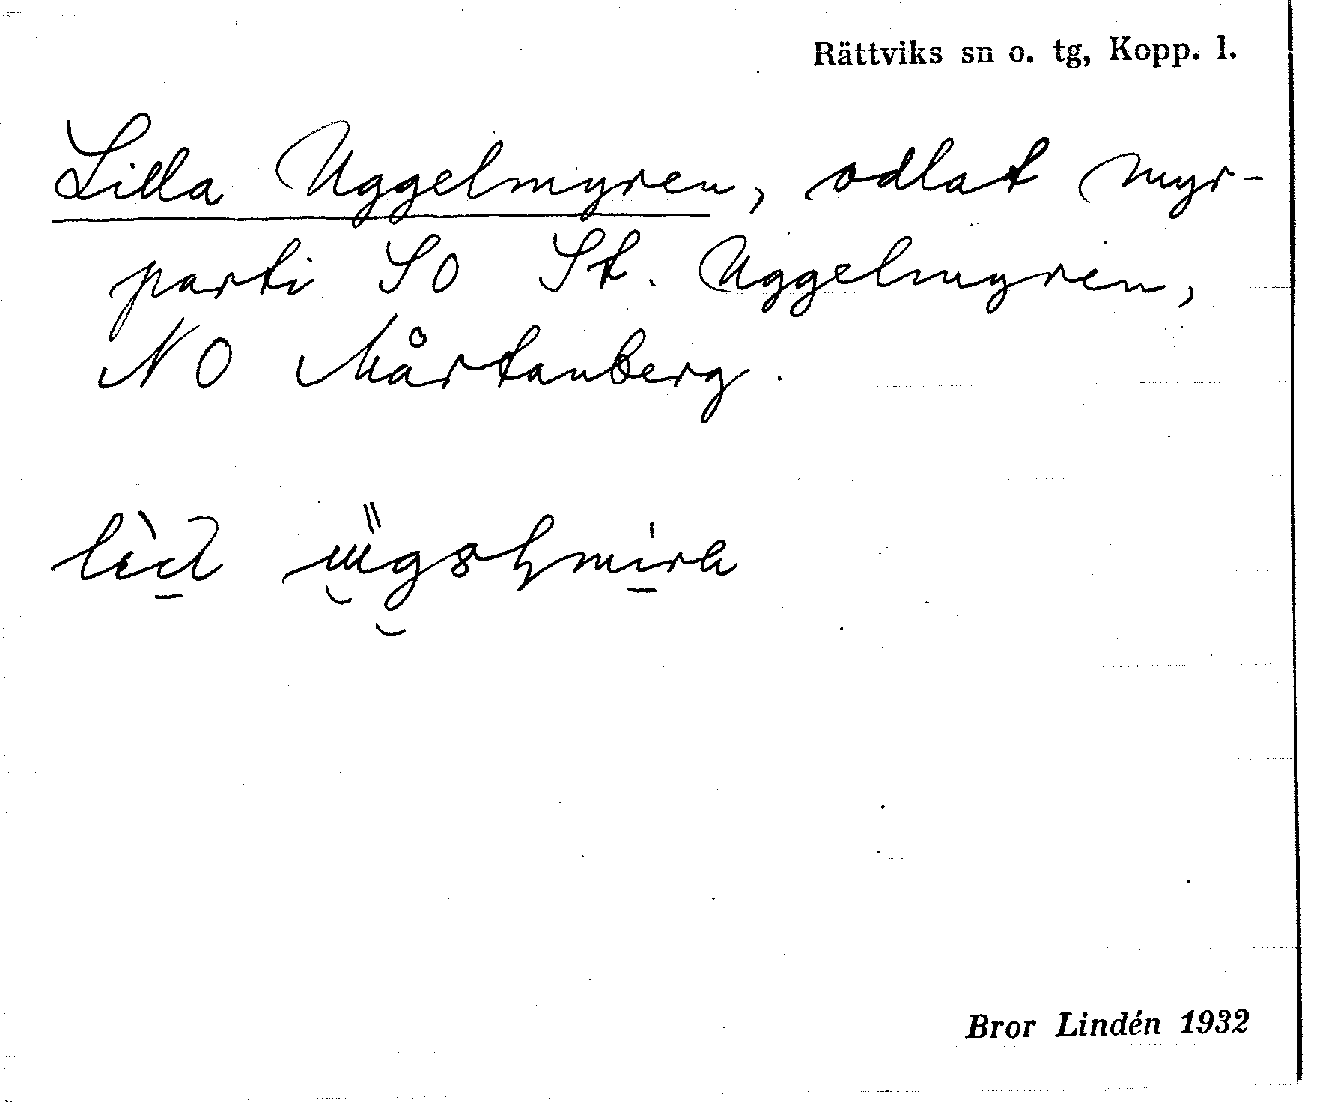 Rättviks sn o. tg, Kopp. l.
Lilla Uggelmyren, odlat myr-
parti SO St. Uggelmyren,
NO Mårtanberg.
Bror Lindén 1932